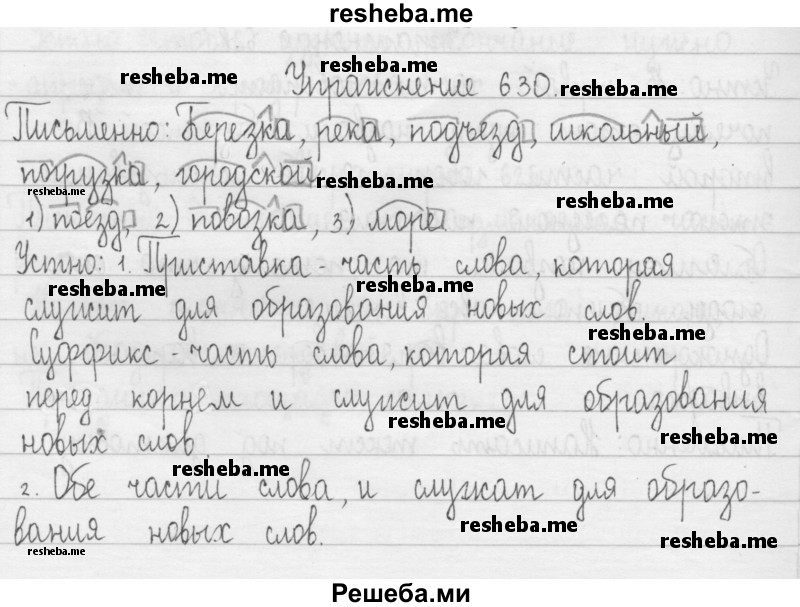 resheba.me
resheba.me resheba.me resheba.me
Упражнение 630.
Письменно: Березка, река, подъезд, школьный,
погрузка, городской
resheba.me resheba.me
1) поезд, 2) повозка, 3) море
Устно: 1. Приставка - часть слова которая
resheba.me resheba.me
служит для образования новых слов.
resheba.me
Суффикс - часть слова, которая стоит
перед корнем и служит для образования
resheba.me resheba.me
новых слов
resheba.me
2. Обе части слова, и служат для образо-
вания новых слов.
resheba.me resheba.me resheba.me
Решеба.ми